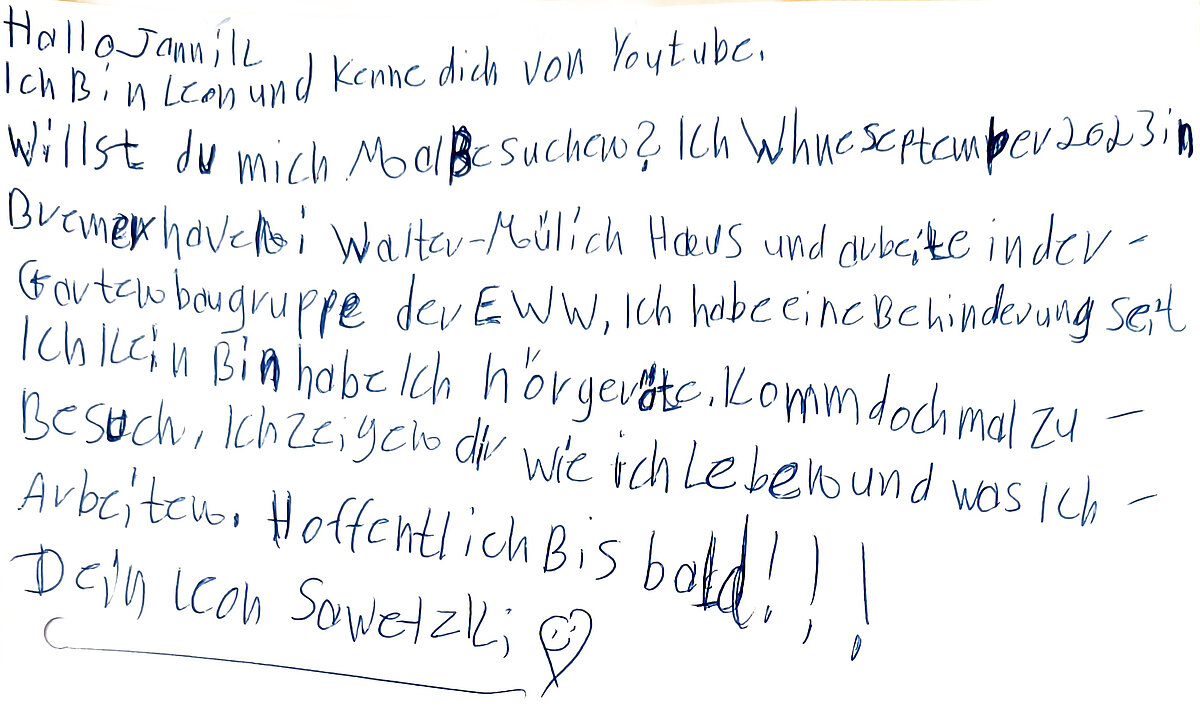 Hallo Jannik
Ich Bin Leon und kenne dich von Youtube.
Willst du mich Mal Besuchen? Ich Whne September 2023 in
Bremerhaven bei Walter-Mülich Haus und arbeite in der -
Gartenbaugruppe der EWW, Ich habe eine Behinderung seit
Ich klein Bin habe Ich hörgeräte. Komm doch mal zu -
Besuch, Ich zeigen dir wie ich Leben und was Ich -
Arbeiten. Hoffentlich Bis bald!!!
Dein Leon Sawetzki